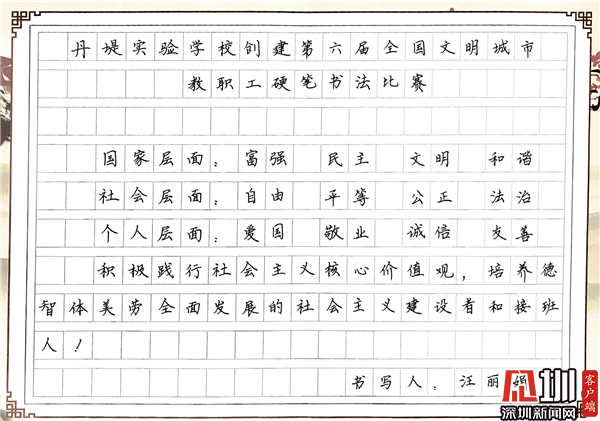 丹堤实验学校创建第六届全国文明城市
教职工硬笔书法比赛
国家层面：富强 民主 文明 和谐
社会层面：自由 平等 公正 法治
个人层面：爱国 敬业 诚信 友善
积极践行社会主义核心价值观，培养德
智体美劳全面发展的社会主义建设者和接班
人！
书写人：汪丽
圳
客户端
深圳新闻网